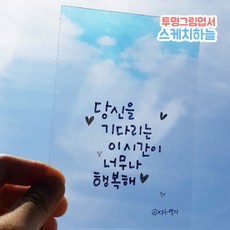 투명그림엽서
스케치하늘
당신을
기다리는
이시간이
너무나
행복해